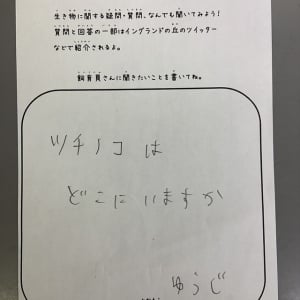 生き物に関する疑問・質問、なんでも聞いてみよう！
質問と回答の一部はイングランドの丘のツイッター
などで紹介されるよ。
飼育員さんに聞きたいことを書いてね。
ツチノコは
どこにいますか
ゆうじ